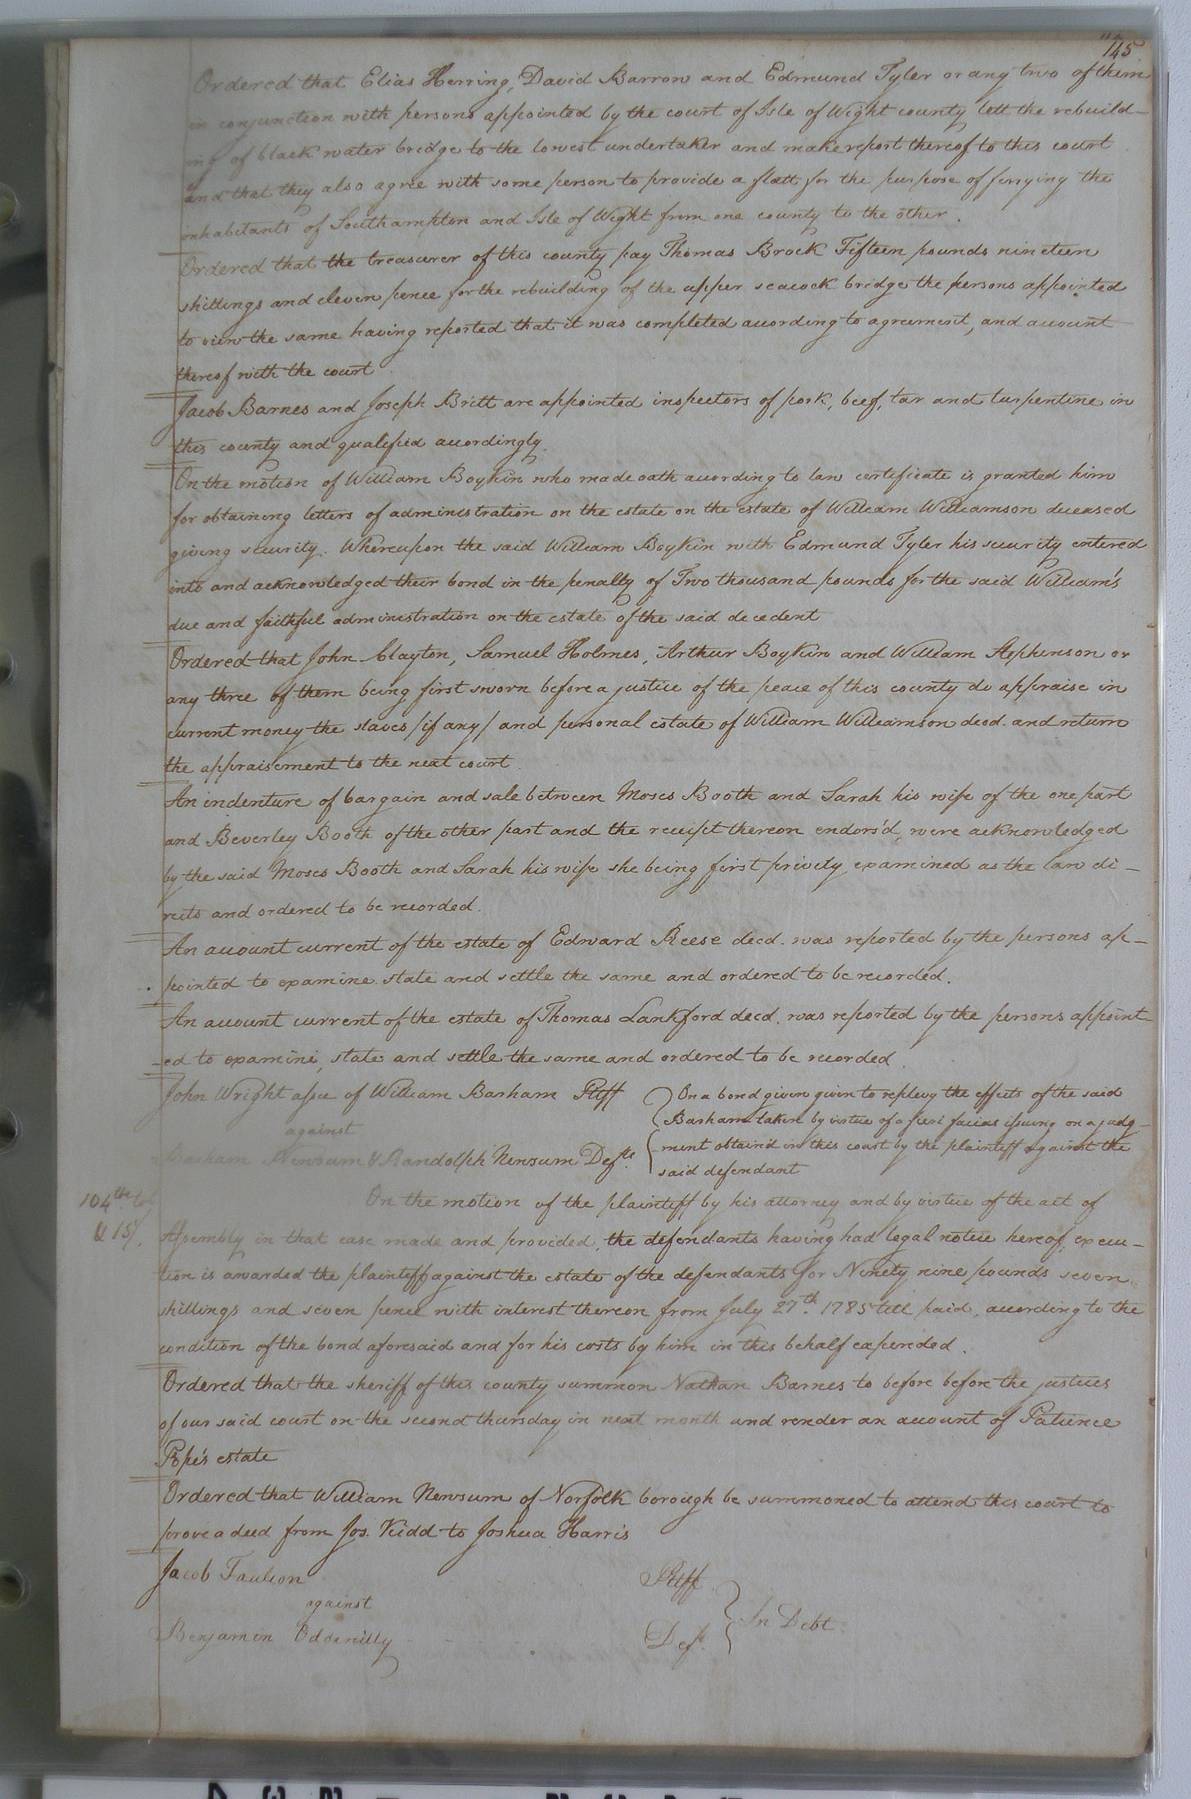 145
Ordered that Elias Herring, David Barrow and Edmund Tyler or any two of them
in conjunction with persons appointed by the court of Isle of Wight county lett the rebuild-
ing of black water bridge to the lowest undertaker and make report thereof to this court
and that they also agree with some person to provide a flatt for the purpose of ferrying the
inhabitants of Southampton and Isle of Wight from one county to the other.
Ordered that the treasurer of this county pay Thomas Brock Fifteen pounds nineteen
shillings and eleven pence for the rebuilding of the upper seacock bridge the persons appointed
to view the same having reported that it was completed according to agreement, and account
thereof with the court
Jacob Barnes and Joseph Britt are appointed inspectors of pork, beef, tar and turpentine in
this county and qualified accordingly.
On the motion of William Boykin who made oath according to law certificate is granted him
for obtaining letters of administration on the estate on the estate of William Williamson deceased
giving security. Whereupon the said William Boykin with Edmund Tyler his security entered
into and acknowledged their bond in the penalty of Two thousand pounds for the said William's
due and faithful administration on the estate of the said decedent
Ordered that John Clayton, Samuel Holmes, Arthur Boykin and William Stephenson or
any three of them being first sworn before a justice of the peace of this county do appraise in
current money the slaves /if any/ and personal estate of William Williamson decd. and return
the appraisement to the next court
An indenture of bargain and sale between Moses Booth and Sarah his wife of the one part
and Beverley Booth of the other part and the receipt thereon endors'd, were acknowledged
by the said Moses Booth and Sarah his wife she being first privily examined as the law di-
rects and ordered to be recorded.
An account current of the estate of Edward Reese decd. was reported by the persons ap-
pointed to examine state and settle the same and ordered to be recorded.
An account current of the estate of Thomas Lankford decd. was reported by the persons appoint-
-ed to examine, state and settle the same and ordered to be recorded
John Wright assee of William Barham Pltff
against
Barham Newsum & Randolph Newsum Defts.
On a bond given given to replevy the effects of the said
Barham taken by virtue of a fieri facias issuing on a judg-
ment obtain'd in this court by the plaintiff against the
said defendant
104 tbo
& 15/.
On the motion of the plaintiff by his attorney and by virtue of the act of
Assembly in that case made and provided, the defendants having had legal notice hereof, execu-
tion is awarded the plaintiff against the estate of the defendants for Ninety nine pounds seven
shillings and seven pence with interest thereon from July 27th. 1785 till paid, according to the
condition of the bond aforesaid and for his costs by him in this behalf expended.
Ordered that the sheriff of this county summon Nathan Barnes to before before the justices
of our said court on the second thursday in next month and render an account of Patience
Pope's estate
Ordered that William Newsum of Norfolk borough be summoned to attend this court to
prove a deed from Jos. Kidd to Joshua Harris
Jacob Faulcon Pltff
against
Benjamin Deft.
In Debt.